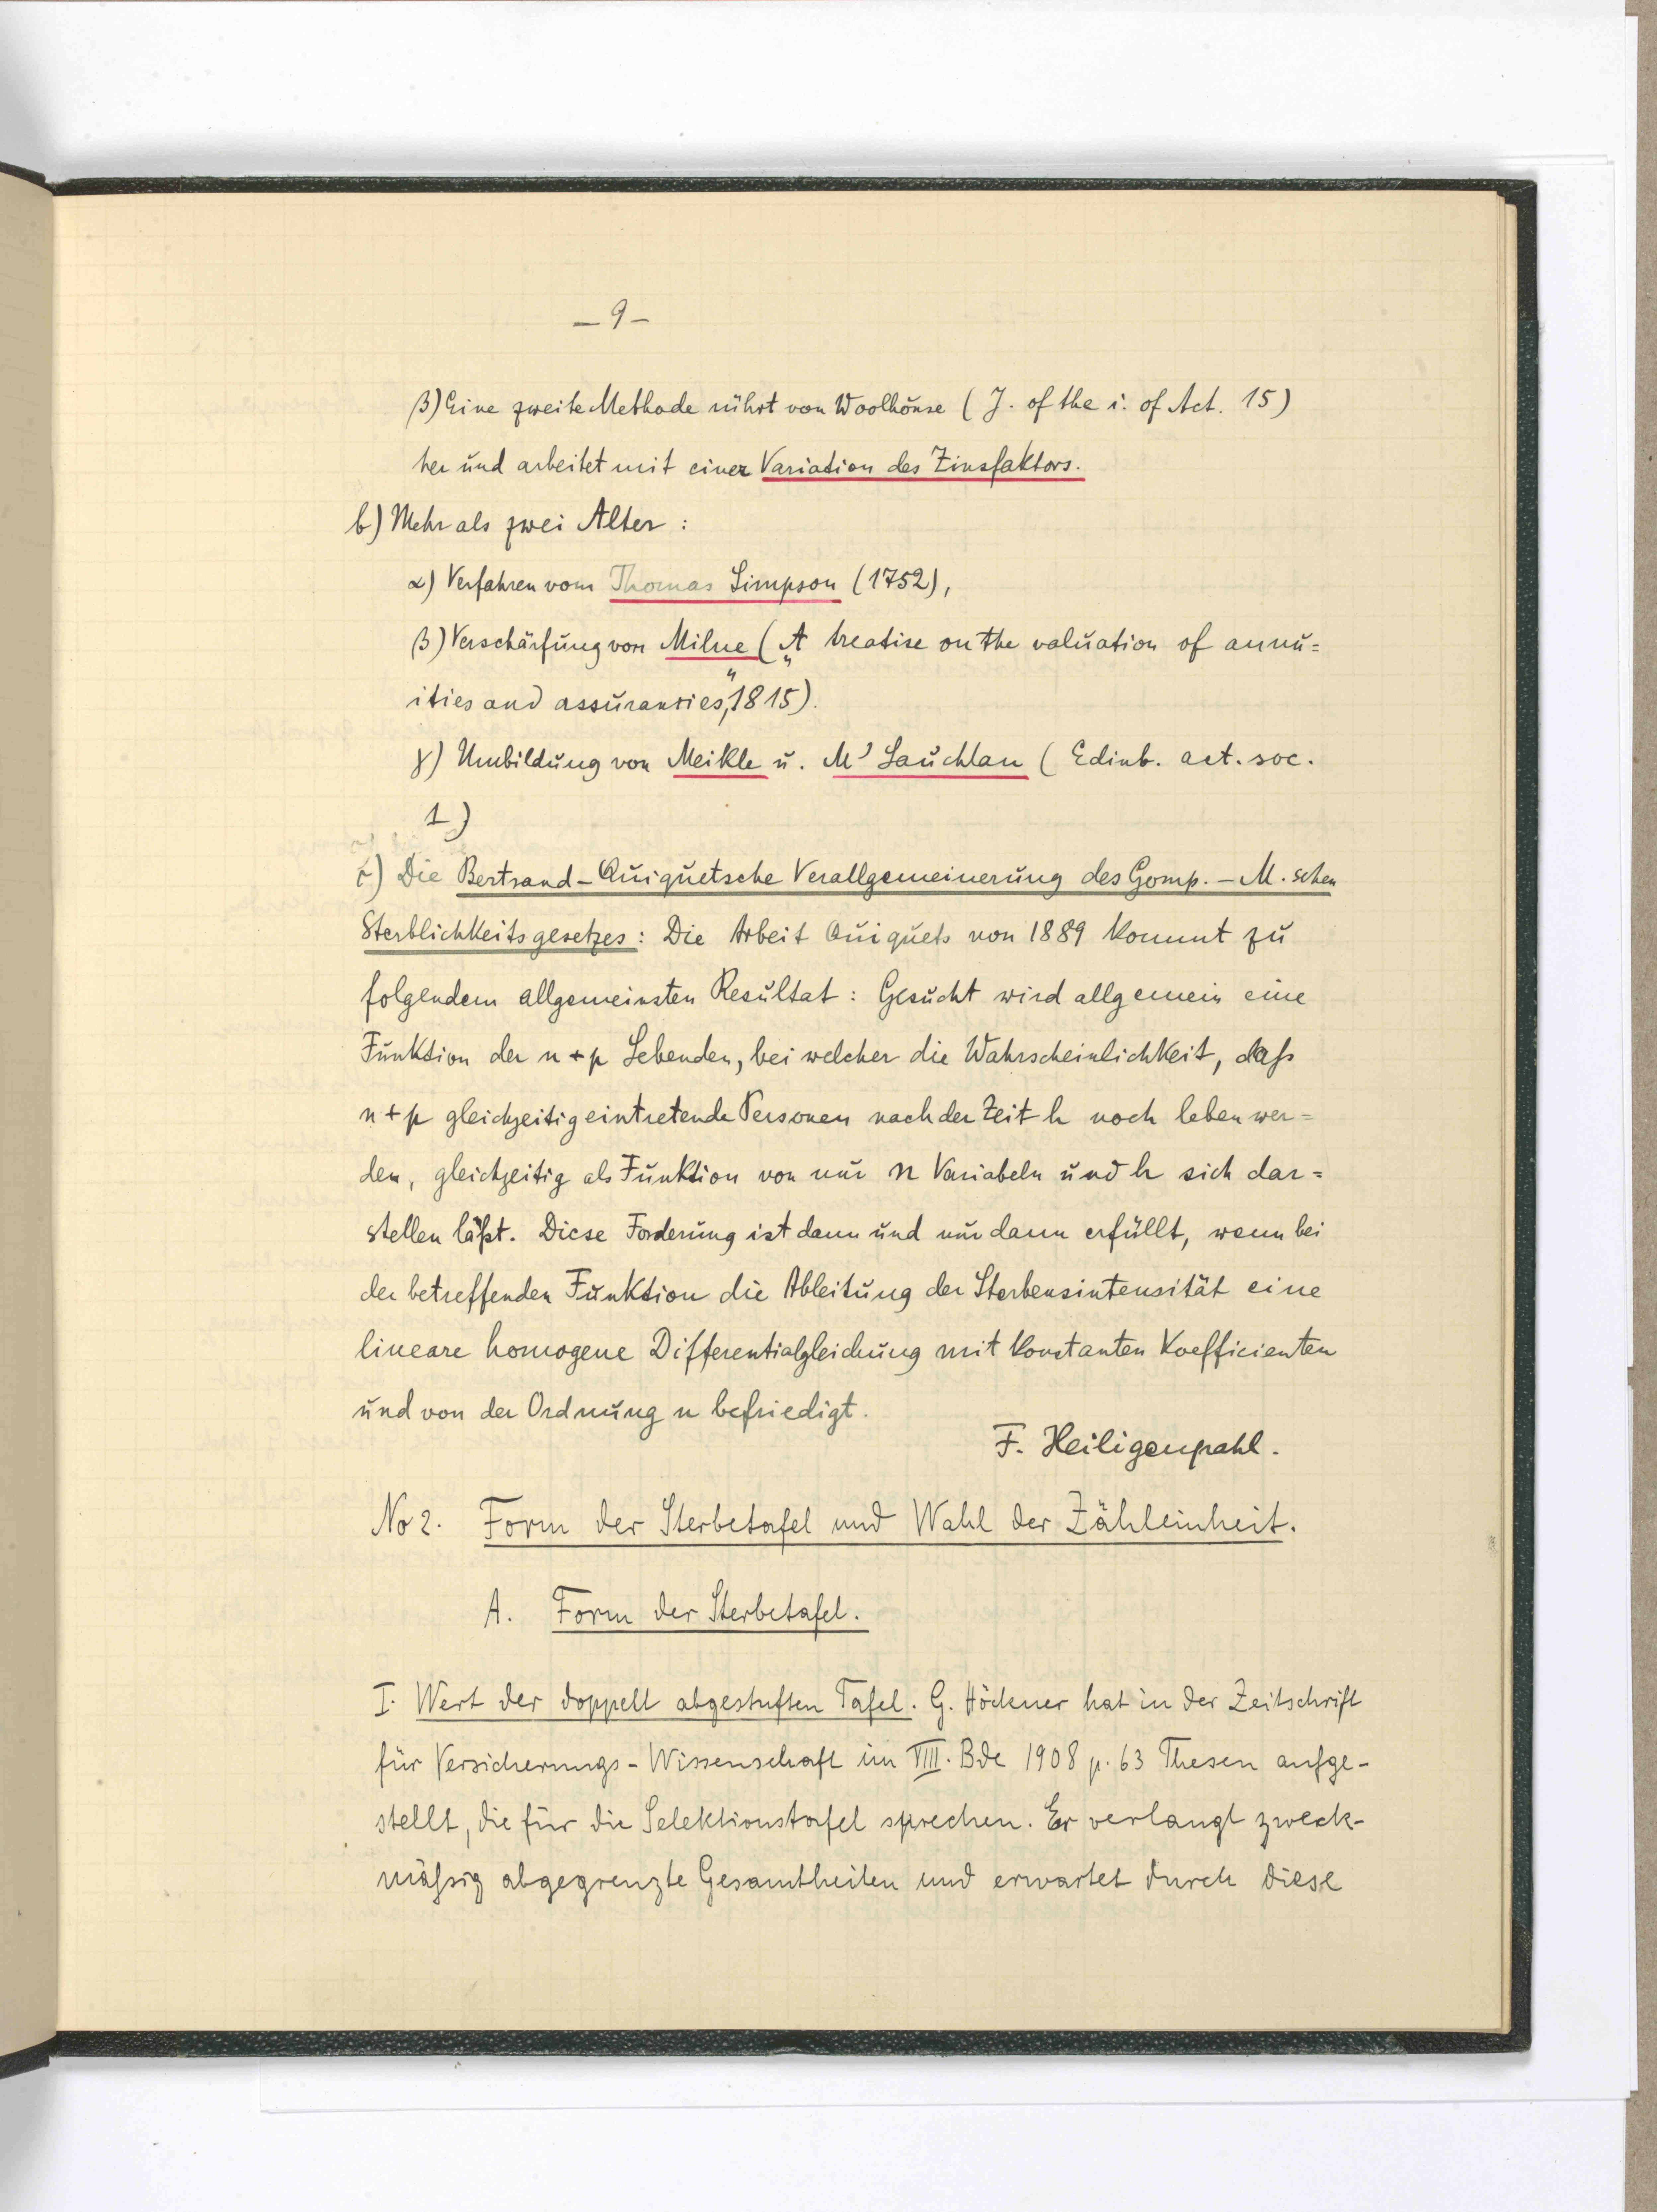 – 9 –
β) Eine zweite Methode rührt von Woolhouse ( J. of the i. of Act. 15)
her und arbeitet mit einer Variation des Zinsfaktors.
b) Mehr als zwei Alter :
α) Verfahren vom Thomas Simpson (1752),
β) Verschärfung von Milne ( „A treatise on the valuation of annu=
ities and assurancies“, 1815).
γ) Umbildung von Meikle u. M' Lauchlan ( Edinb. act. soc.
1 )
c) Die Bertrand-Quiquetsche Verallgemeinerung des Gomp. – M. schen
Sterblichkeitsgesetzes : Die Arbeit Quiquets von 1889 kommt zu
folgendem allgemeinsten Resultat : Gesucht wird allgemein eine
Funktion der n + p Lebenden, bei welcher die Wahrscheinlichkeit, dass
n + p gleichzeitig eintretende Personen nach der Zeit h noch leben wer=
den, gleichzeitig als Funktion von nur n Variabeln und h sich dar=
stellen läßt. Diese Forderung ist dann und nur dann erfüllt, wenn bei
der betreffenden Funktion die Ableitung der Sterbensintensität eine
lineare homogene Differentialgleichung mit konstanten Koefficienten
und von der Ordnung n befriedigt.
F. Heiligenpahl.
No 2. Form der Sterbetafel und Wahl der Zähleinheit.
A. Form der Sterbetafel.
I. Wert der doppelt abgestuften Tafel. G. Höckner hat in der Zeitschrift
für Versicherungs-Wissenschaft im VIII. Bde 1908 p. 63 Thesen aufge-
stellt, die für die Selektionstafel sprechen. Er verlangt zweck-
mäßig abgegrenzte Gesamtheiten und erwartet durch diese